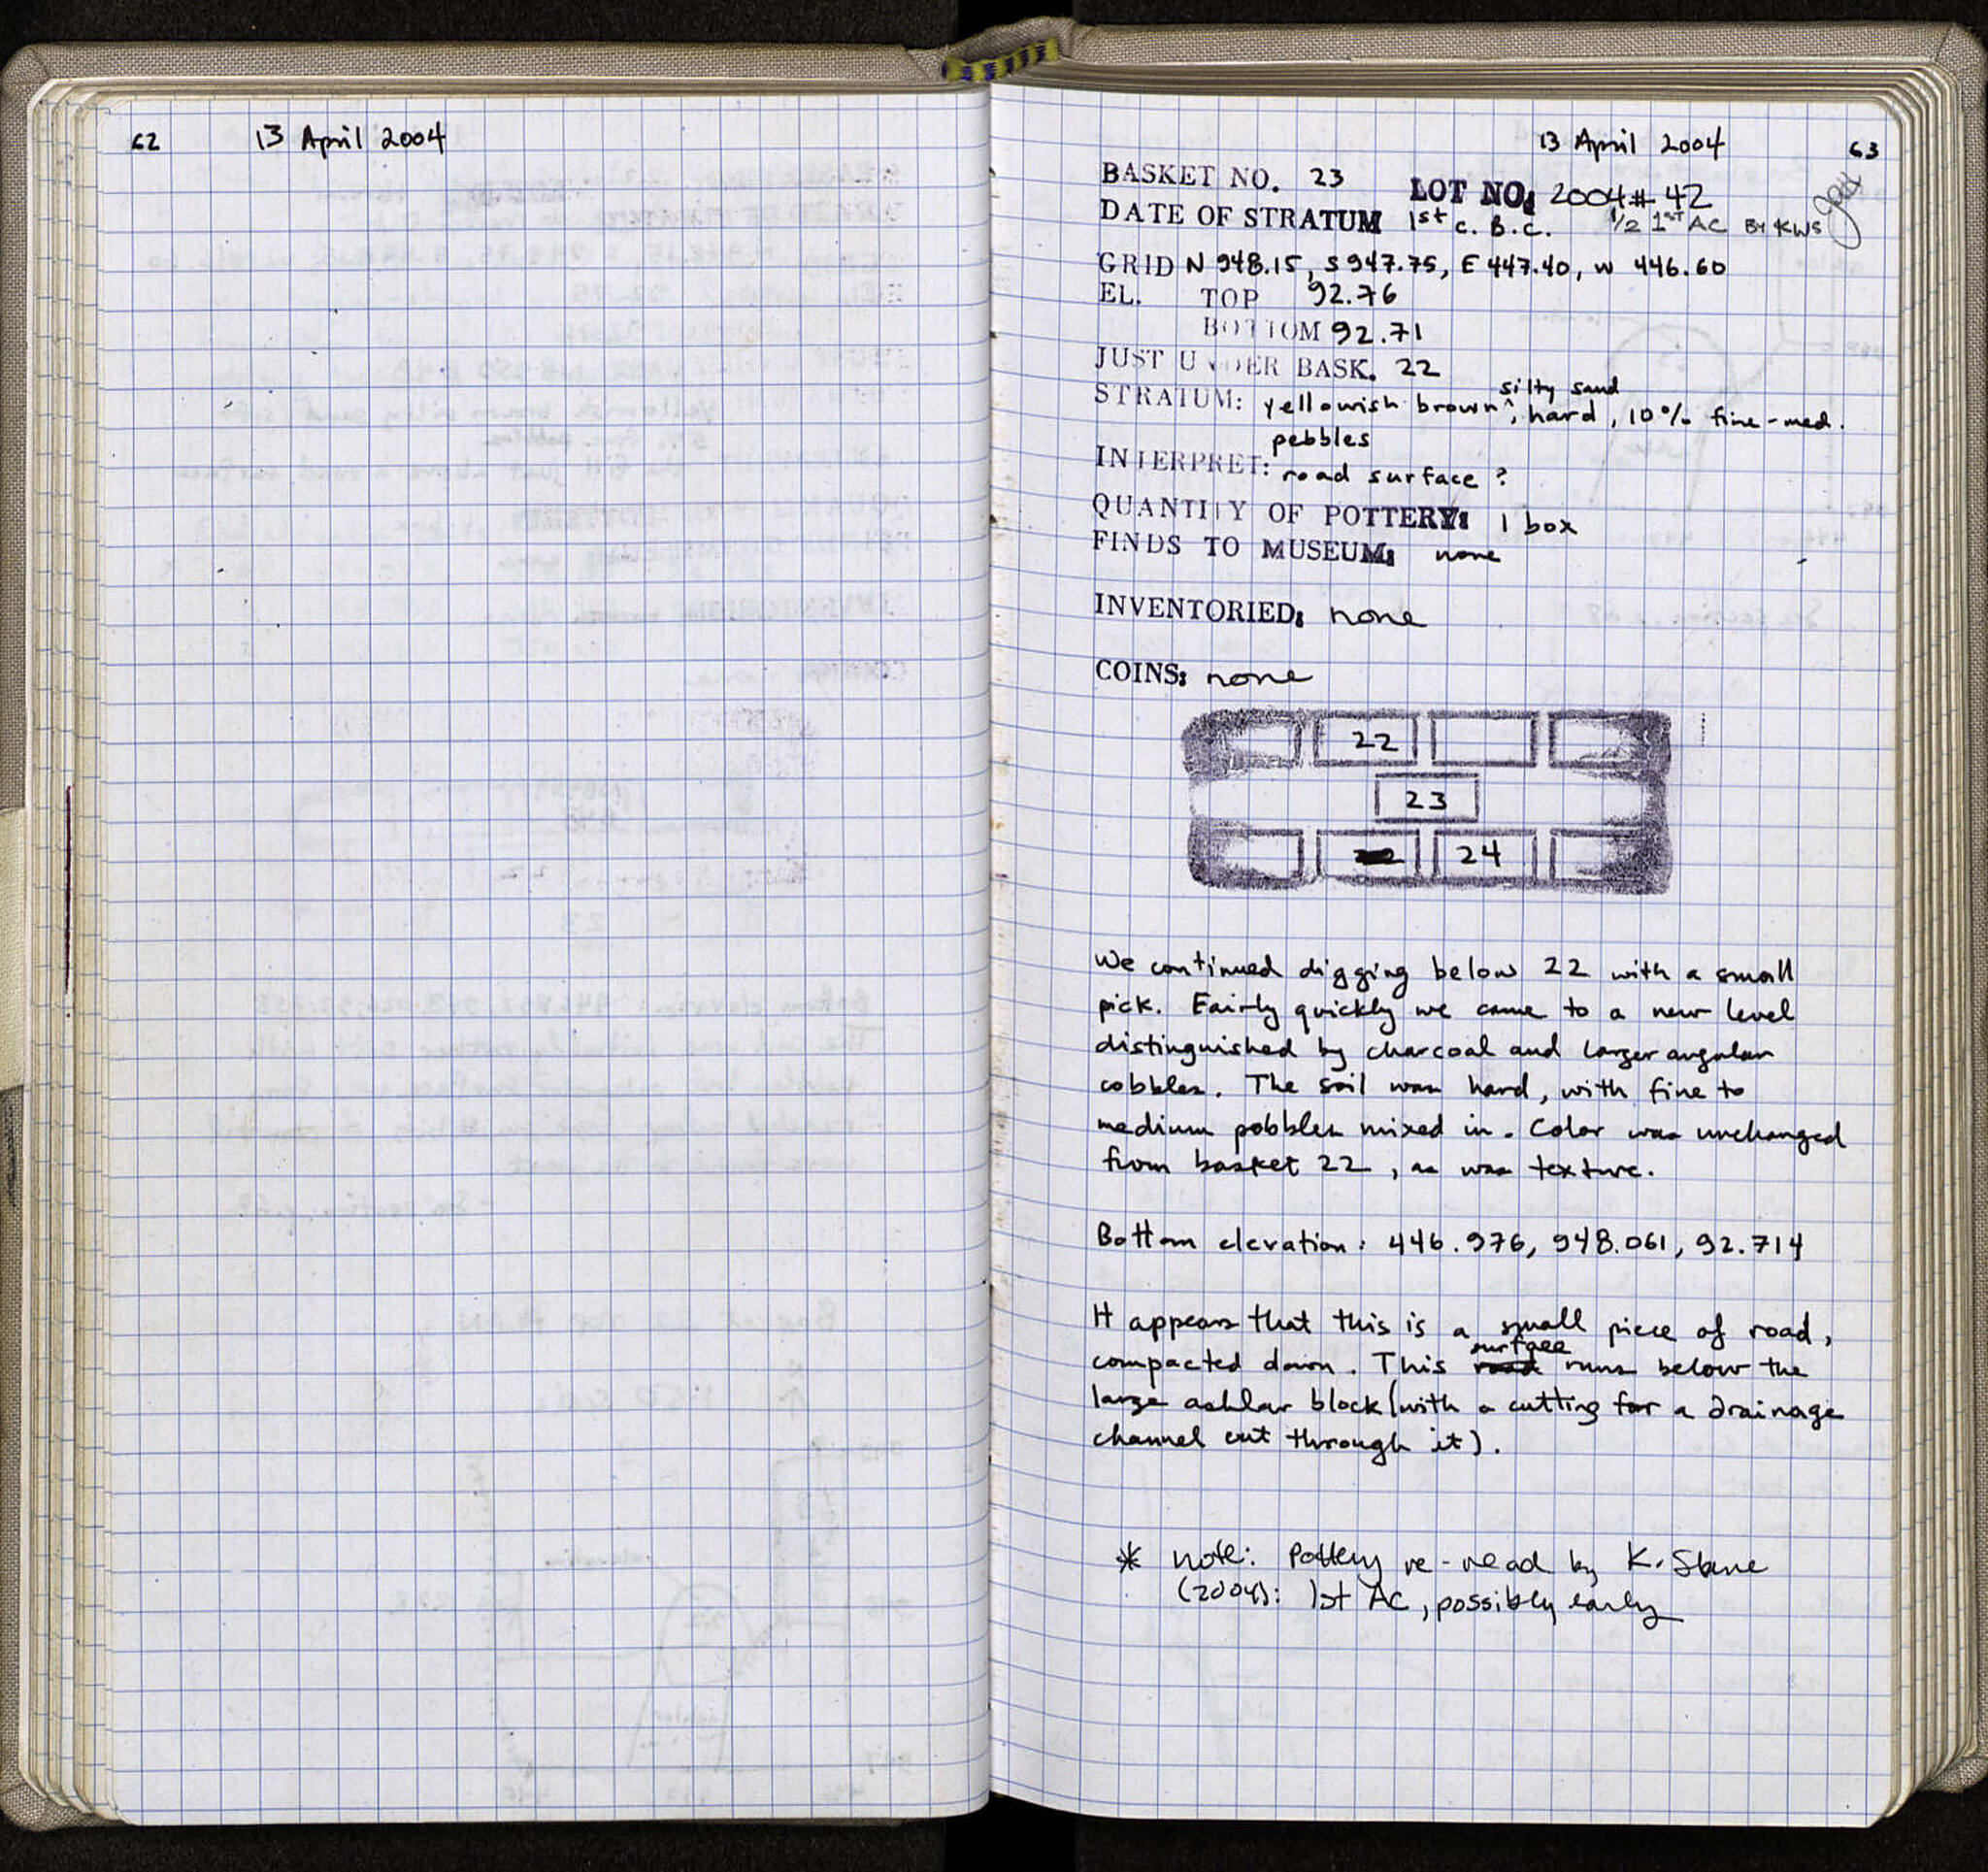 62 13 April 2004
13 April 2004 63
BASKET NO. 23 LOT NO: 2004#42
DATE OF STRATUM 1st c. B.C. 1/2 1ST AC BY KWS
GRID N 948.15, S 947.75, E 447.40, W 446.60
EL. TOP 92.76
BOTTOM 92.71
JUST UNDER BASK. 22
silty sand
STRATUM: yellowish brown^, hard, 10% fine-med.
pebbles
INTERPRET: road surface?
QUANTITY OF POTTERY: 1 box
FINDS TO MUSEUM: none
INVENTORIED: none
COINS: none
22
23
24
We continued digging below 22 with a small
pick. Fairly quickly we came to a new level
distinguished by charcoal and larger angular
cobbles. The soil was hard, with fine to
medium pebbles mixed in. Color was unchanged
from basket 22, as was texture.
Bottom elevation: 446.976, 948.061, 92.714
It appears that this is a small piece of road,
surface
compacted down. This road runs below the
large ashlar block (with a cutting for a drainage
channel cut through it).
* note: Pottery re-read by K. Slane
(2004): 1st AC, possibly early